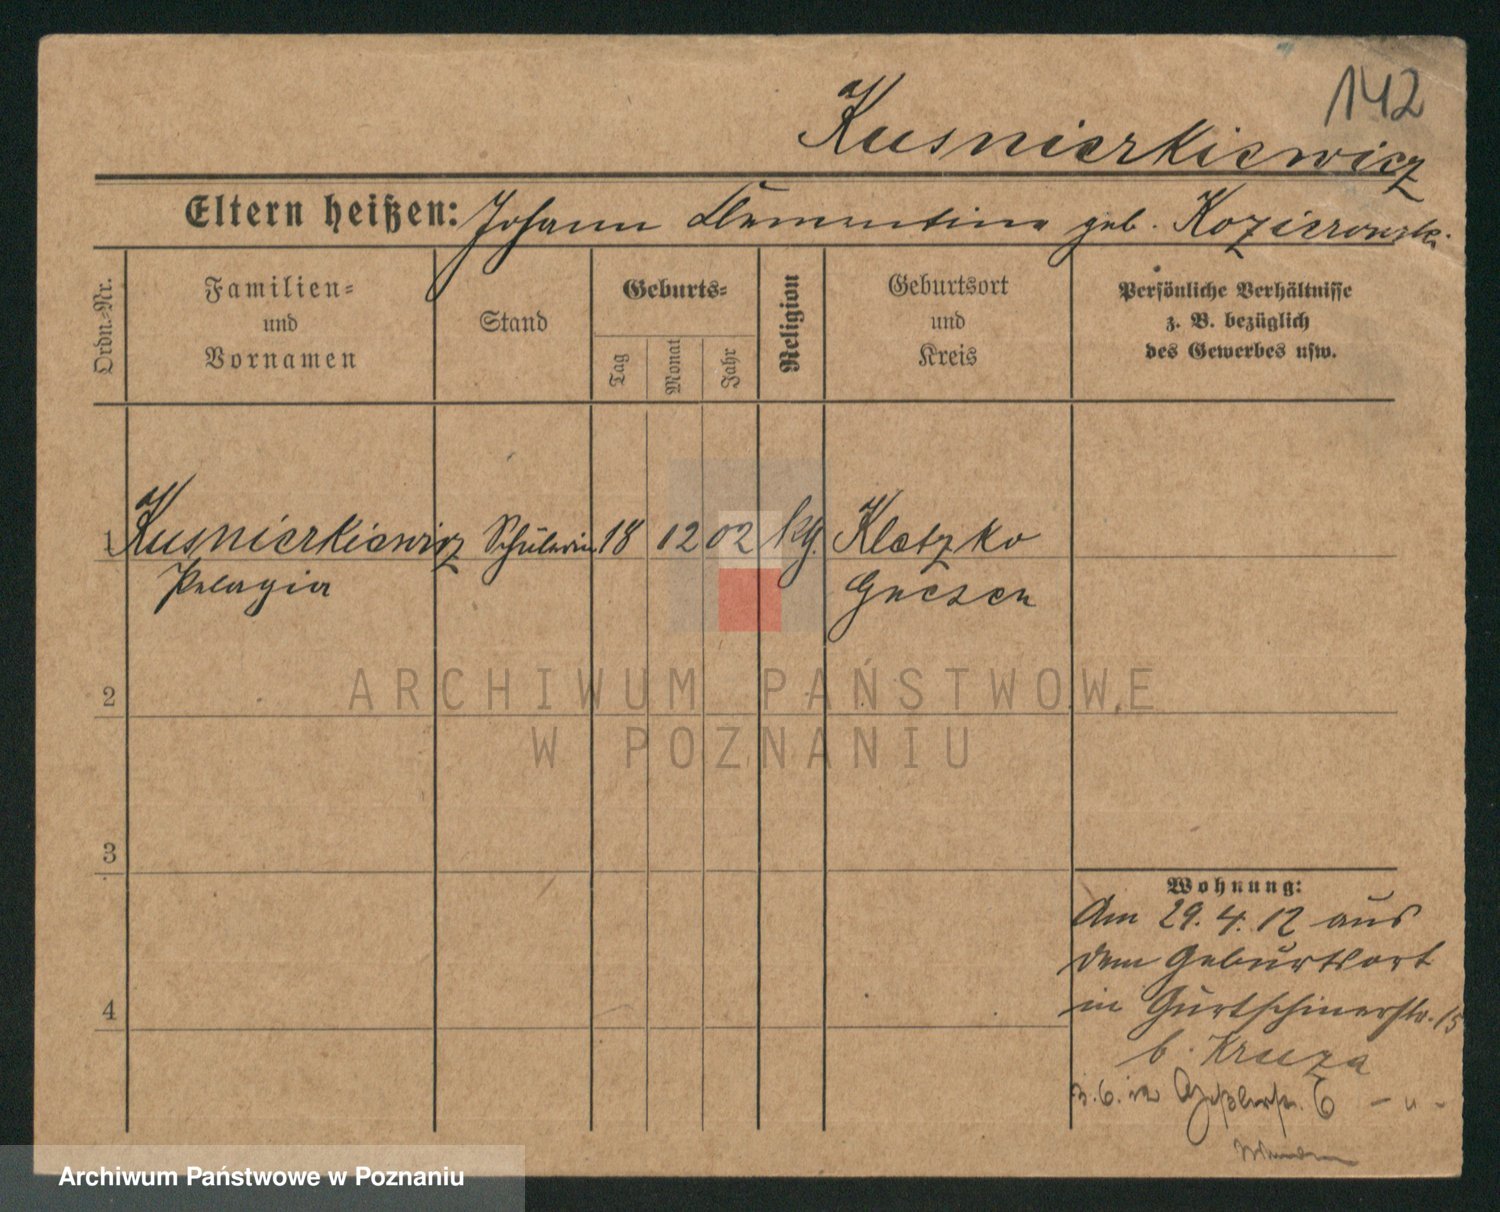 142
Kusnierkiewicz
Eltern heißen: Johann Clementine geb. Kozierowski
Ordn.-Nr.
Familien-
und
Vornamen
Stand
Geburts-
Tag
Monat
Jahr
Religion
Geburtsort
und
Kreis
Persönliche Verhältnisse
z. B. bezüglich
des Gewerbes usw.
1 Kusnierkiewicz Schülerin 18 12 02 kg. Kletzko
Pelagia Gnesen
2
3
4
Wohnung:
Am 29. 4. 12 aus
dem Geburtsort
in Gurtschinerstr. 15
b. Kruza
ARCHIWUM PAŃSTWOWE
W POZNANIU
Archiwum Państwowe w Poznaniu